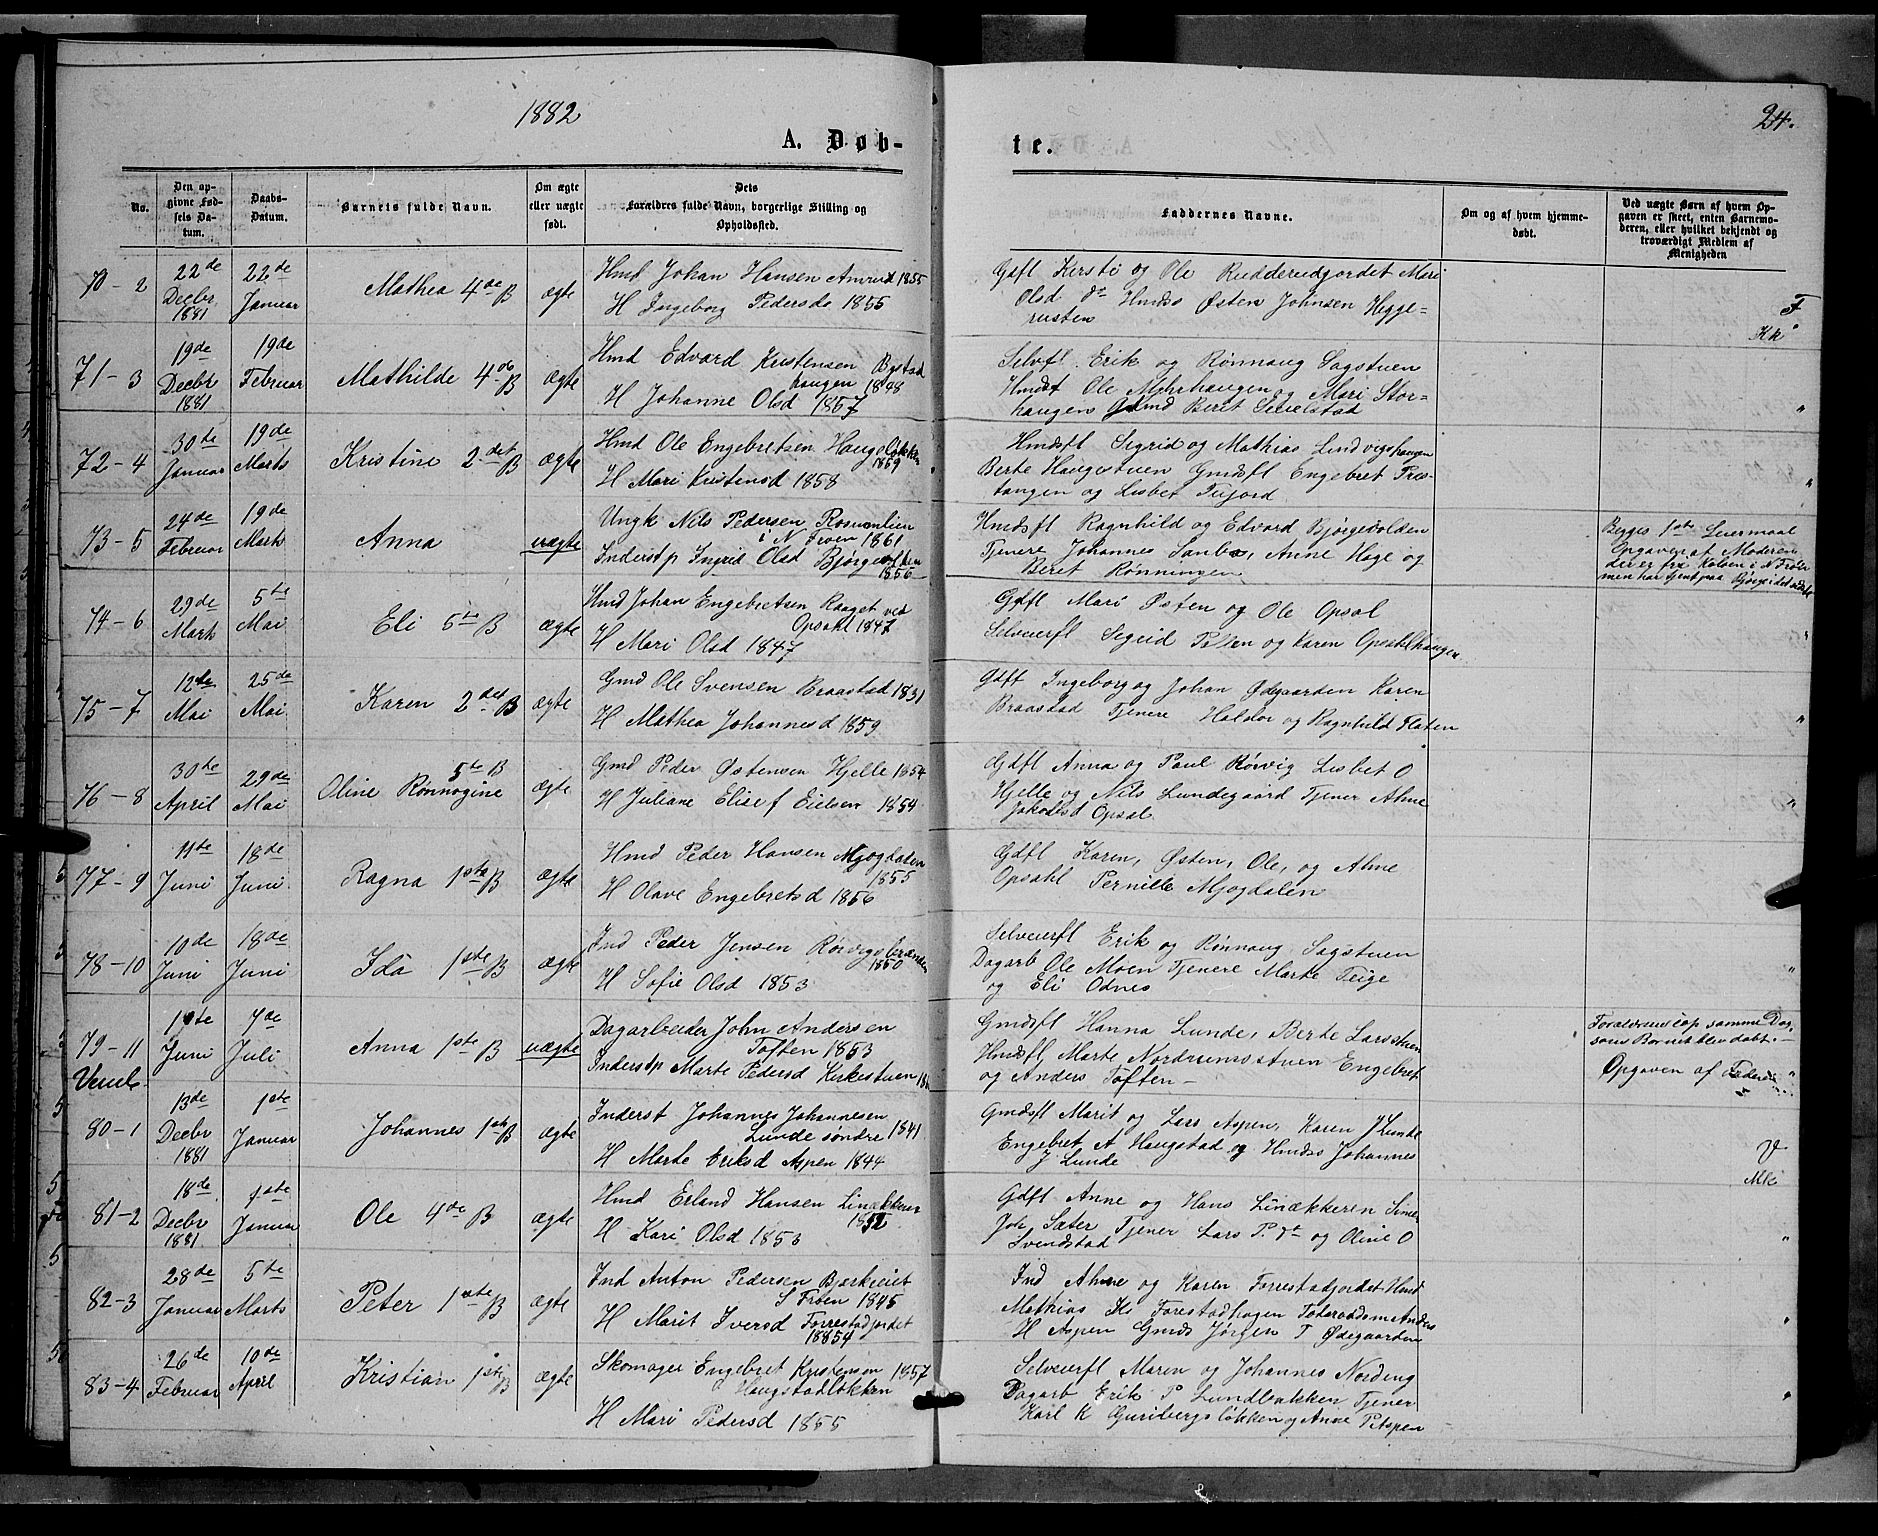 1882
24.
A. Døb-
te.
No.
Den op-
givne Fød-
sels Da-
tum.
Daabs-
Datum.
Barnets fulde Navn.
Om ægte
eller uægte
født.
Dets
Forældres fulde Navn, borgerlige Stilling og
Opholdssted.
Faddernes Navne.
Om og af hvem hjemme-
døbt.
Ved uægte Børn af hvem Op-
gaven er skeet, enten Barnemo-
deren, eller hvilket bekjendt og
troværdigt Medlem af
Menigheden
70 - 2
22de
Decbr
1881
22de
Januar
Mathea 4de B
ægte
Hmd Johan Hansen Amrud 1855
H Ingeborg Pedersd 1855
Gdfl Kersti og Ole Rudderudjordet Mari
Olsd dto Hmds Østen Johnsen Hegge-
rusten
F
Kk
71 - 3
19de
Decbr
1881
19de
Februar
Mathilde 4de B
ægte
Hmd Edvard Kristensen Bystad
haugen 1848
H Johanne Olsd 1857
Selvfl. Erik og Rønnaug Sagstuen
Hmdst Ole Myhrhaugen og Mari Stor-
haugen Gmd Beret Sevelstad
"
72 - 4
30te
Januar
19de
Marts
Kristine 2det B
ægte
Hmd Ole Engebretsen Haugsløkken
1859
H Mari Kristensd 1858
Hmdsfl Sigrid og Mathias Lindvigshaugen
Berte Haugstuen Gmdsfl Engebret Præs-
tangen og Lisbet Tufjord
"
73 - 5
24de
Februar
19de
Marts
Anna
uægte
Ungk Nils Pedersen Rosumlien
i N Froen 1861
Inderstp Ingrid Olsd Bjørge
1856
Hmdsfl Ragnhild og Edvard Bjørgevolden
Tjenere Johannes Sanbo, Anne Hage og
Beret Rønningen
Begges 1ste Leiermaal
Opgaven af Moderen
der er fra Kolsen i N Frøen
men har tjent paa Bjørge i det sidste
74 - 6
29de
Marts
5te
Mai
Eli 5te B
ægte
Hmd Johan Engebretsen Raaget ved
Opsahl 1847
H Mari Olsd 1847
Gdfl Mari Østen og Ole Opsal
Selveierfl Sigrid Pellen og Karen Opsahlhaugen
"
75 - 7
12te
Mai
25de
Mai
Karen 2det B
ægte
Gmd Ole Svensen Braastad 1831
H Mathea Johannesd 1859
Gdfl Ingeborg og Johan Ødegaarden Karen
Braastad Tjenere Haldor og Ragnhild Flaten
"
76 - 8
30te
April
29de
Mai
Oline Rønnogine 5te B
ægte
Gmd Peder Østensen Hjelle 1854
H Juliane Elise f Eielsen 1854
Gdfl Anna og Paul Rørvig Lisbet O
Hjelle og Nils Lundegaard Tjener Ahne
Jakobsd Opsal
"
77 - 9
11te
Juni
18de
Juni
Ragna 1ste B
ægte
Hmd Peder Hansen Mjogdalen
1855
H Olave Engebretsd 1856
Gdfl Karen, Østen, Ole, og Ahne
Opsahl Pernille Mjogdalen
78 - 10
10de
Juni
18de
Juni
Ida 1ste B
ægte
Ind Peder Jensen Rørvigsbrænden
1850
H Sofie Olsd 1853
Selveierfl Erik og Rønnaug Sagstuen
Dagarb Ole Moen Tjenere Marte Teige
og Eli Odnes
"
79 - 11
11te
Juni
7de
Juli
Anna 1ste B
uægte
Dagarbeider John Andersen
Toften 1853
Inderstp Marte Pedersd Kirkestuen
Gmdsfl Hanna Lunde, Berte Larsstuen
Hmdsfl Marte Nordrumsstuen Engebret
og Anders Toften -
Forældrene cop samme Dag
som Barnet blev døbt. -
Opgaven af Faderen
"
80 - 1
13de
Decbr
1881
1ste
Januar
Johannes 1ste B
ægte
Inderst Johannes Johannesen
Lunde søndre 1841
H Marte Eriksd Aspen 1844
Gmdsfl Marit og Lars Aspen, Karen J Lunde
Engebret A Haugstad og Hmds Johannes
J Lunde
V
Mk
81 - 2
18de
Decbr
1881
1ste
Januar
Ole 4de B
ægte
Hmd Erland Hansen Linækkeren
1852
H Kari Olsd 1853
Gdfl Anne og Hans Linækkeren Simen
Joh Sæter Tjener Lars P. dto og Oline O
Svendstad
"
82 - 3
28de
Januar
5te
Marts
Peter 1ste B
ægte
Ind Anton Pedersen Bjerkeiet
S Frøen 1845
H Marit Iversd Forrestadjordet
18854
Ind Ahne og Karen Forrestadjordet Hmd
Mathias Forestadhagen Anders
H Aspen Gmds Jørgen T Ødegaarden
"
83 - 4
26de
Februar
10de
April
Kristian 1ste B
ægte
Skomager Engebret Kristensen 1857
Haugstadløkken
H Mari Pedersd 1855
Selveierfl Maren og Johannes Nordeng
Dagarb Erik P Lundbakken Tjener
Karl K Guribergsløkken og Anne Aspen
"